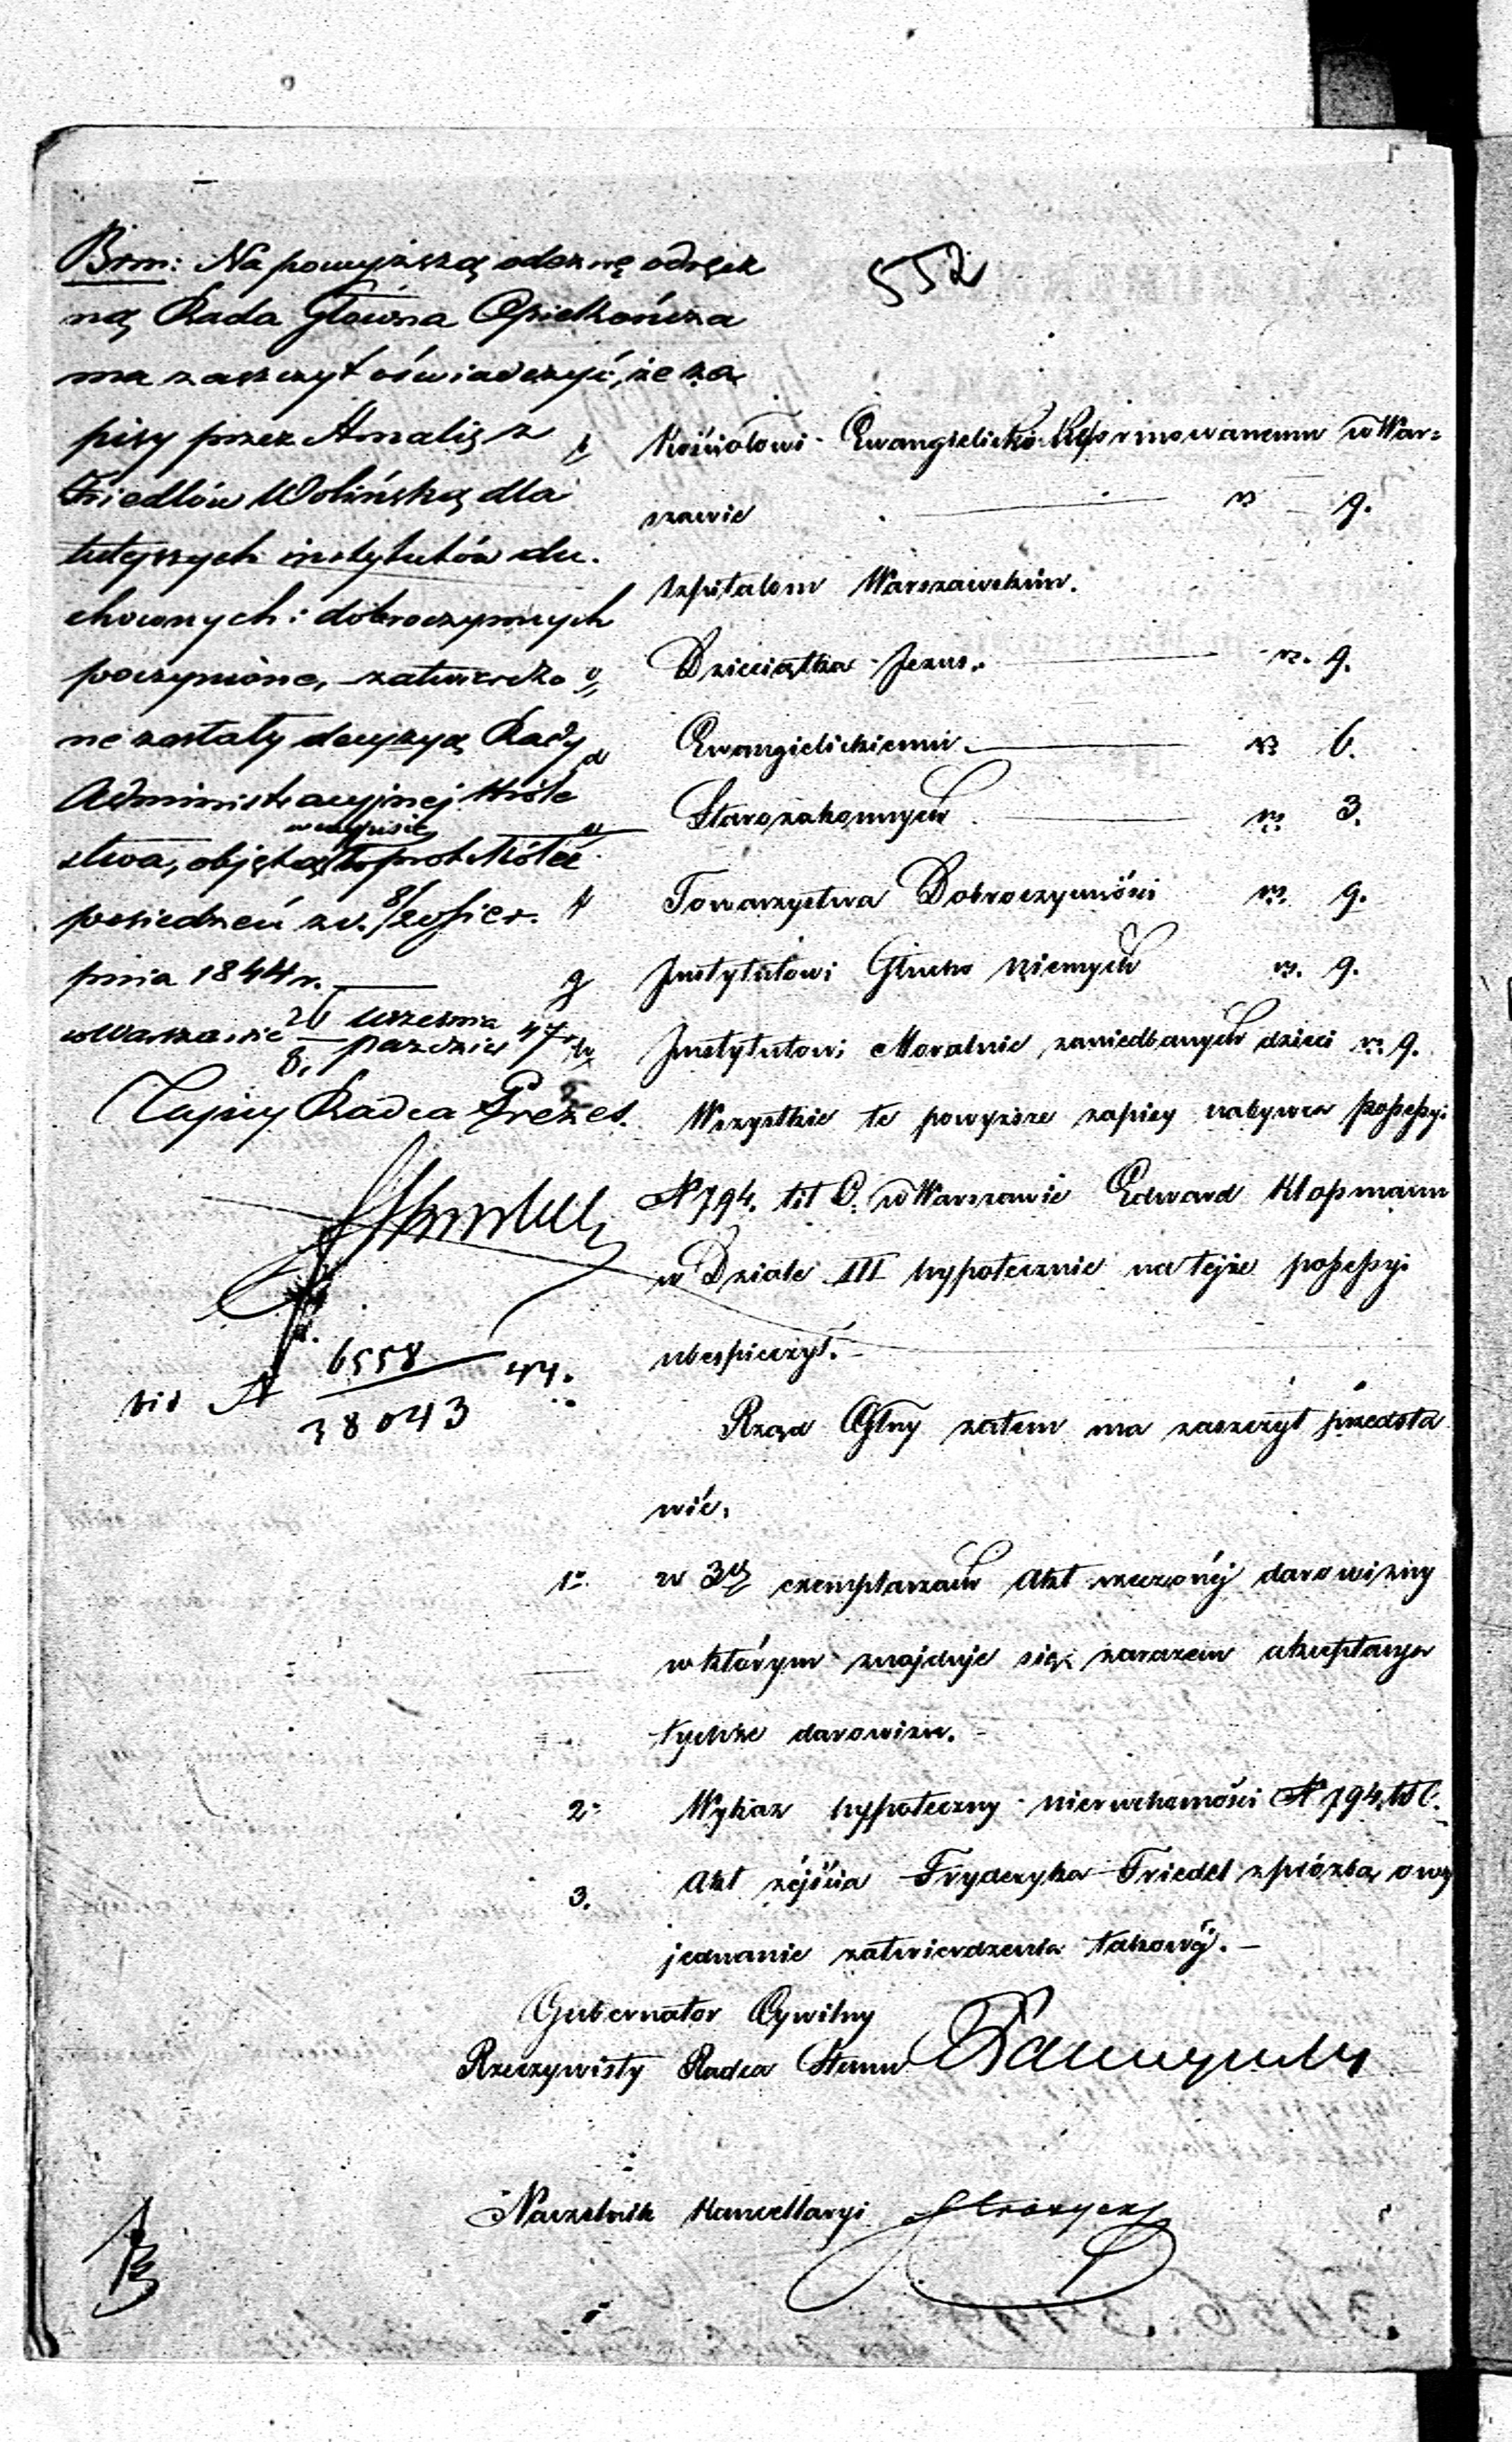 552
Brm: Na powyższą odezwę odręcz
ną Rada Główna Opiekuńcza
ma zaszczyt oświadczyć, że za
pisy przez Amalię z
Friedlów Wolińską dla
tutejszych instytutów du-
chownych i dobroczynnych
poczynione, zatwierdzo
ne zostały decyzyą Rady
Administracyjnej Króle
stwa, objętą w wypisie protokółu
posiedzeń z d. 8/20 sier-
pnia 1844 r.
w Warszawie 26 września
8. paździer 47 r.
Tajny Radca Prezes.
6558
38043 44.
b Kościołowi Ewangielicko Reformowanemu w War=
szawie rs 9.
Szpitalom Warszawskim.
Dzieciątka Jezus. rs. 9.
d Ewangielickiemu rs 6.
e Starozakonnych rs. 3.
f Towarzystwa Dobroczynności rs. 9.
g Instytutowi Głucho Niemych rs. 9.
h Instytutowi Moralnie zaniedbanych dzieci rs. 9.
Wszystkie te powyższe zapisy nabywca possessyi
N 794. lit C. w Warszawie Edward Klopmann
w Dziale III hypotecznie na tejże possessyi
ubespieczył.
Rząd Glny zatem ma zaszczyt przedsta
wić,
1o w 3ch exemplarzach Akt rzeczonéj darowizny
w którym znajduje się zarazem akceptacya
tychże darowizn.
2o Wykaz hypoteczny nieruchomości N 794. lit C.
3. Akt zéjścia Fryderyka Friedel z prózbą o wy
jednanie zatwierdzenia takowéj.—
Gubernator Cywilny
Rzeczywisty Radca Stanu
Naczelnik Kancellaryi